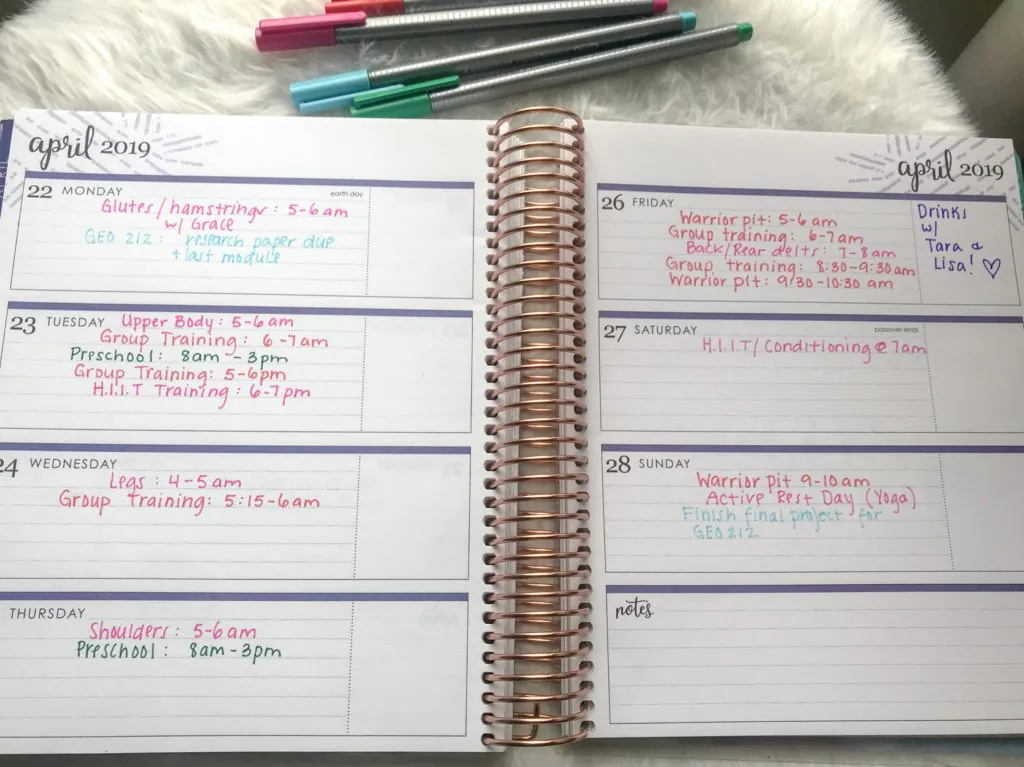 april 2019
22 MONDAY
earth day
Glutes/hamstrings: 5-6 am
w/ Grace
GEO 212: research paper due
+ last module
23 TUESDAY
Upper Body: 5-6am
Group Training: 6-7am
Preschool: 8am-3pm
Group Training: 5-6pm
H.I.I.T Training: 6-7pm
24 WEDNESDAY
Legs: 4-5am
Group Training: 5:15-6am
THURSDAY
Shoulders: 5-6am
Preschool: 8am-3pm
april 2019
26 FRIDAY
Warrior pit: 5-6 am
Group training: 6-7am
Back/Rear delts: 7-8am
Group training: 8:30-9:30am
Warrior pit: 9:30-10:30 am
Drinks
w/
Tara &
Lisa! ♡
27 SATURDAY
passover ends
H.I.I.T/Conditioning @ 7am
28 SUNDAY
Warrior pit 9-10am
Active Rest Day (Yoga)
Finish final project for
GEO 212
notes